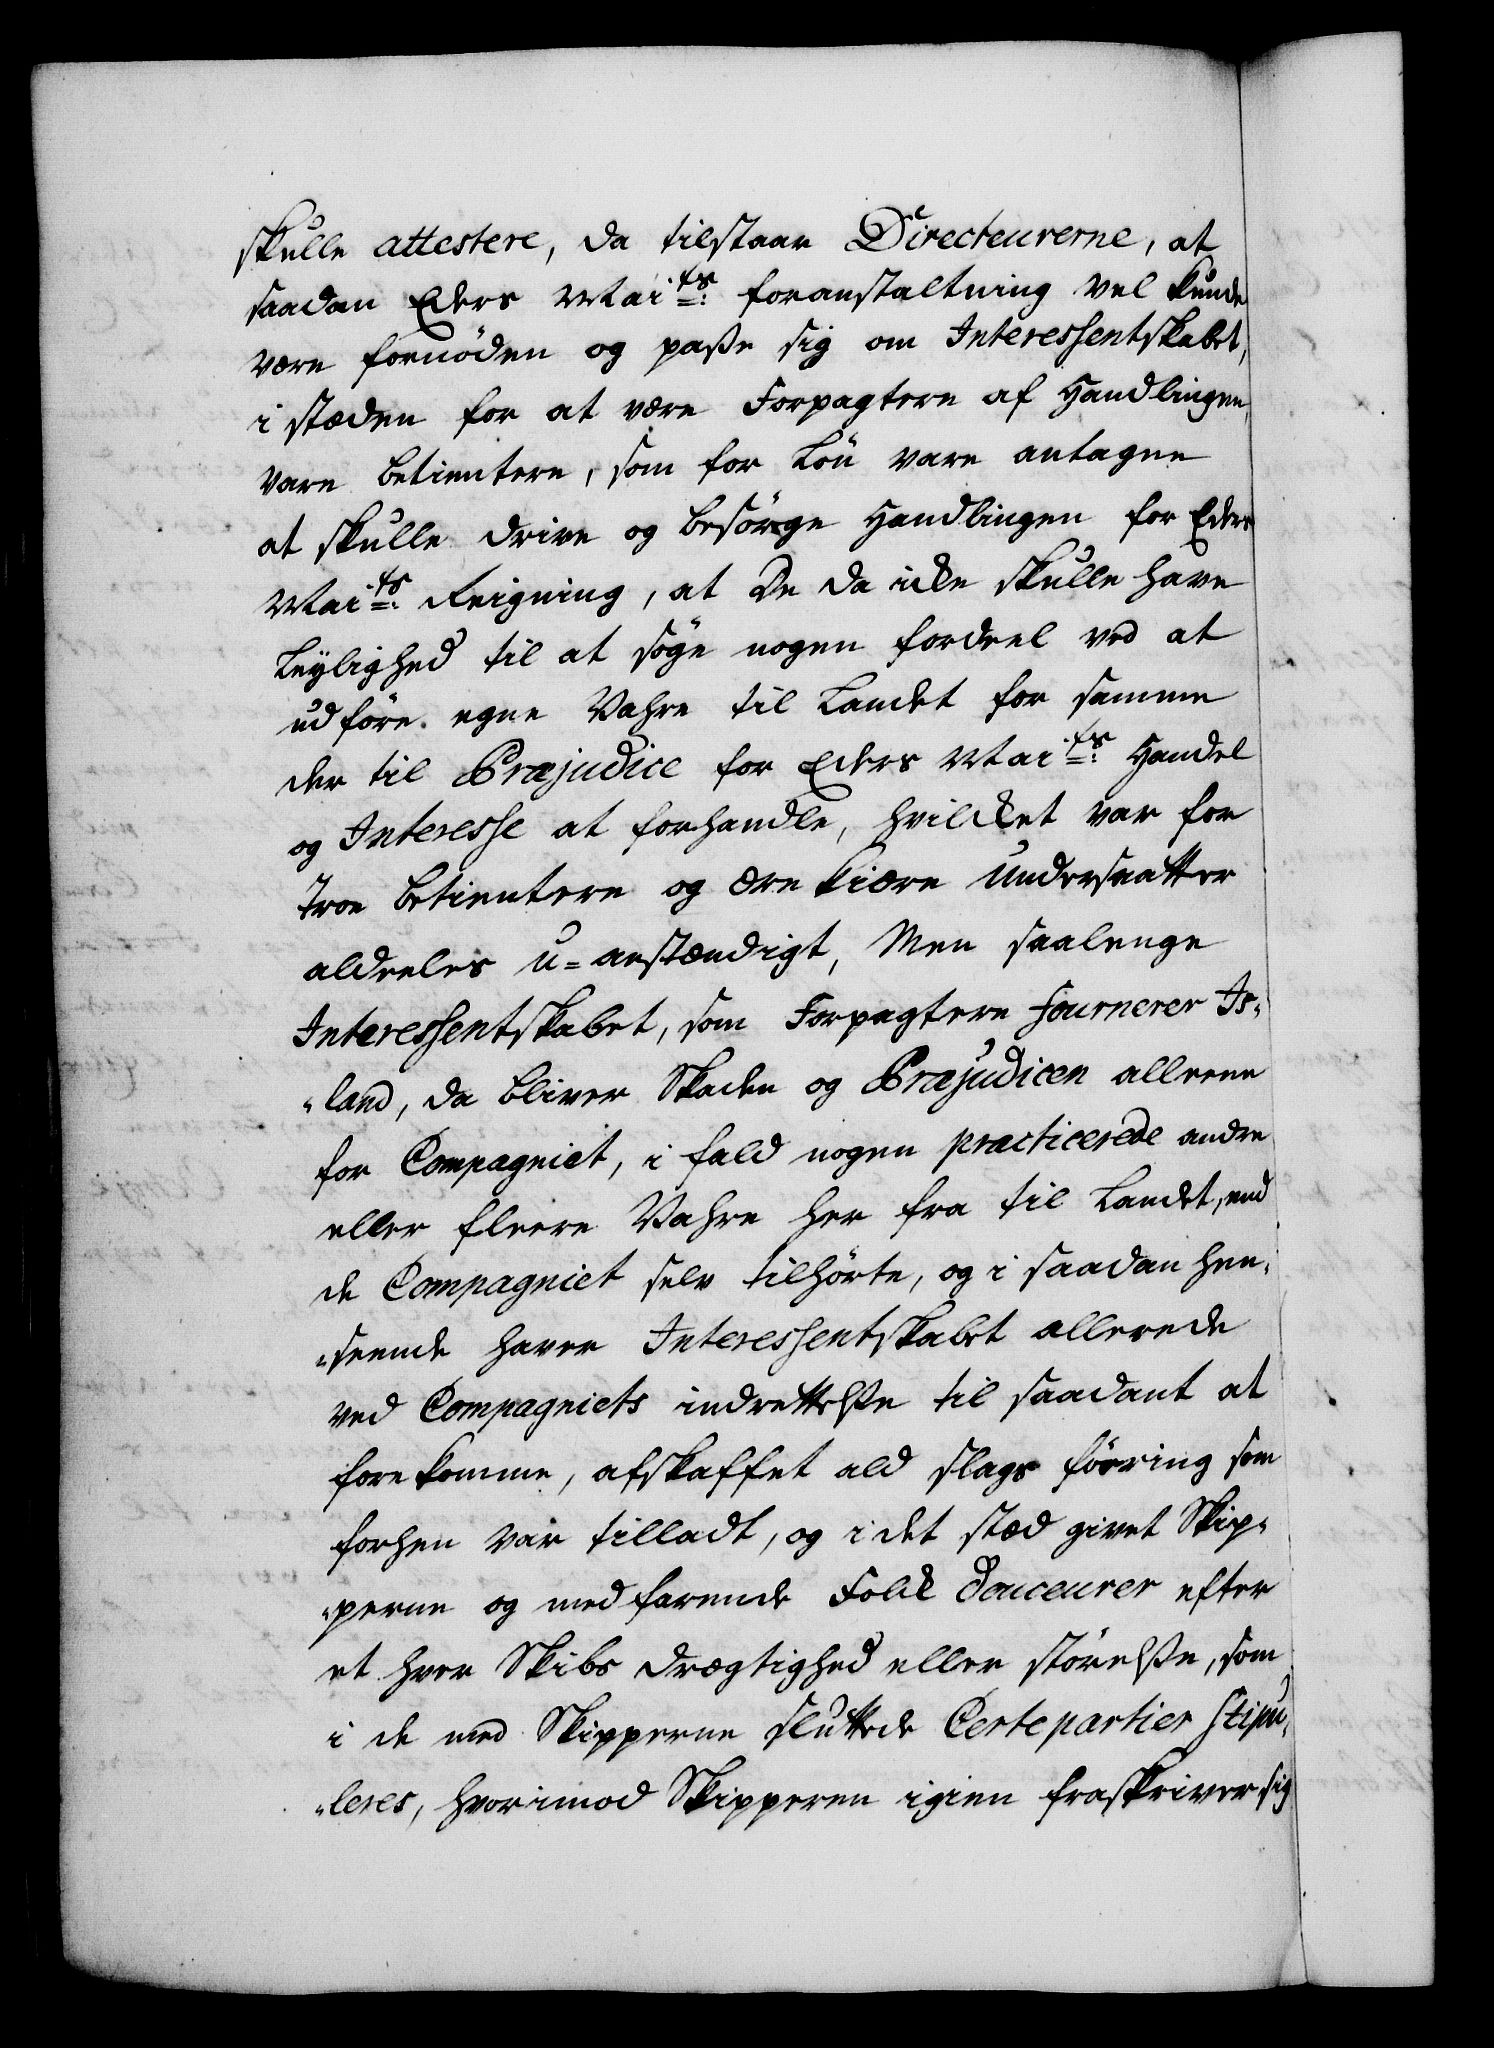 skulle attestere, da tilstaar Directeurerne, at
saadan Eders Mai:ts foranstaltning vel kunde
være fornöden og passe sig om Interessentskabet,
i stæden for at være Forpagtere af Handlingen,
vare betientere, som for Lön vare antagne
at skulle drive og besörge Handlingen for Eders
Mai:ts Reigning, at De da icke skulle have
Leylighed til at söge nogen fordeel ved at
udföre egne Vahre til Landet for samme
der til Præjudice for Eders Mai:ts Handel
og Interesse at forhandle, hvilcket var for
Troe betientere og ære kiære Undersaatter
aldeeles u=anstændigt, Men saalenge
Interessentskabet, som Forpagtere fournerer Is-
-land, da bliver Skaden og Præjudicen alleene
for Compagniet, i fald nogen practicerede andre
eller fleere Vahre her fra til Landet, end
de Compagniet selv tilhörte, og i saadan hen-
-seende haver Interessentskabet allerede
ved Compagniets indrettelsse til saadant at
forekomme, afskaffet ald slags föring som
forhen var tilladt, og i det stæd givet Skip-
-perne og medfarende Folck douceurer efter
et hver Skibs drægtighed eller störelsse, som
i de med Skipperne sluttede Certepartier stipu-
-leres, hvorimod Skipperen igien fraskriver sig